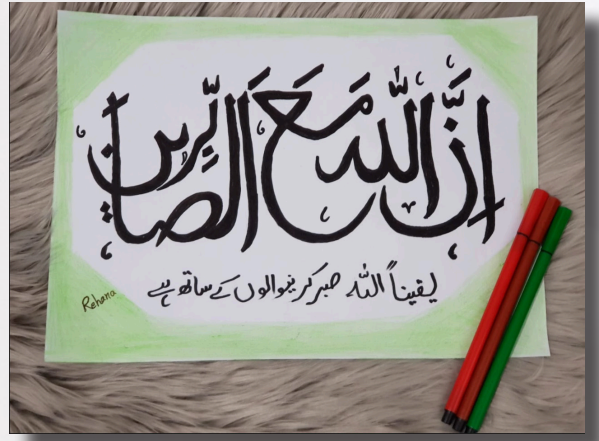 إِنَّ اللّٰهَ مَعَ الصَّابِرِين
یقیناً اللّٰه صبر کرنیوالوں کے ساتھ ہے
Rehana